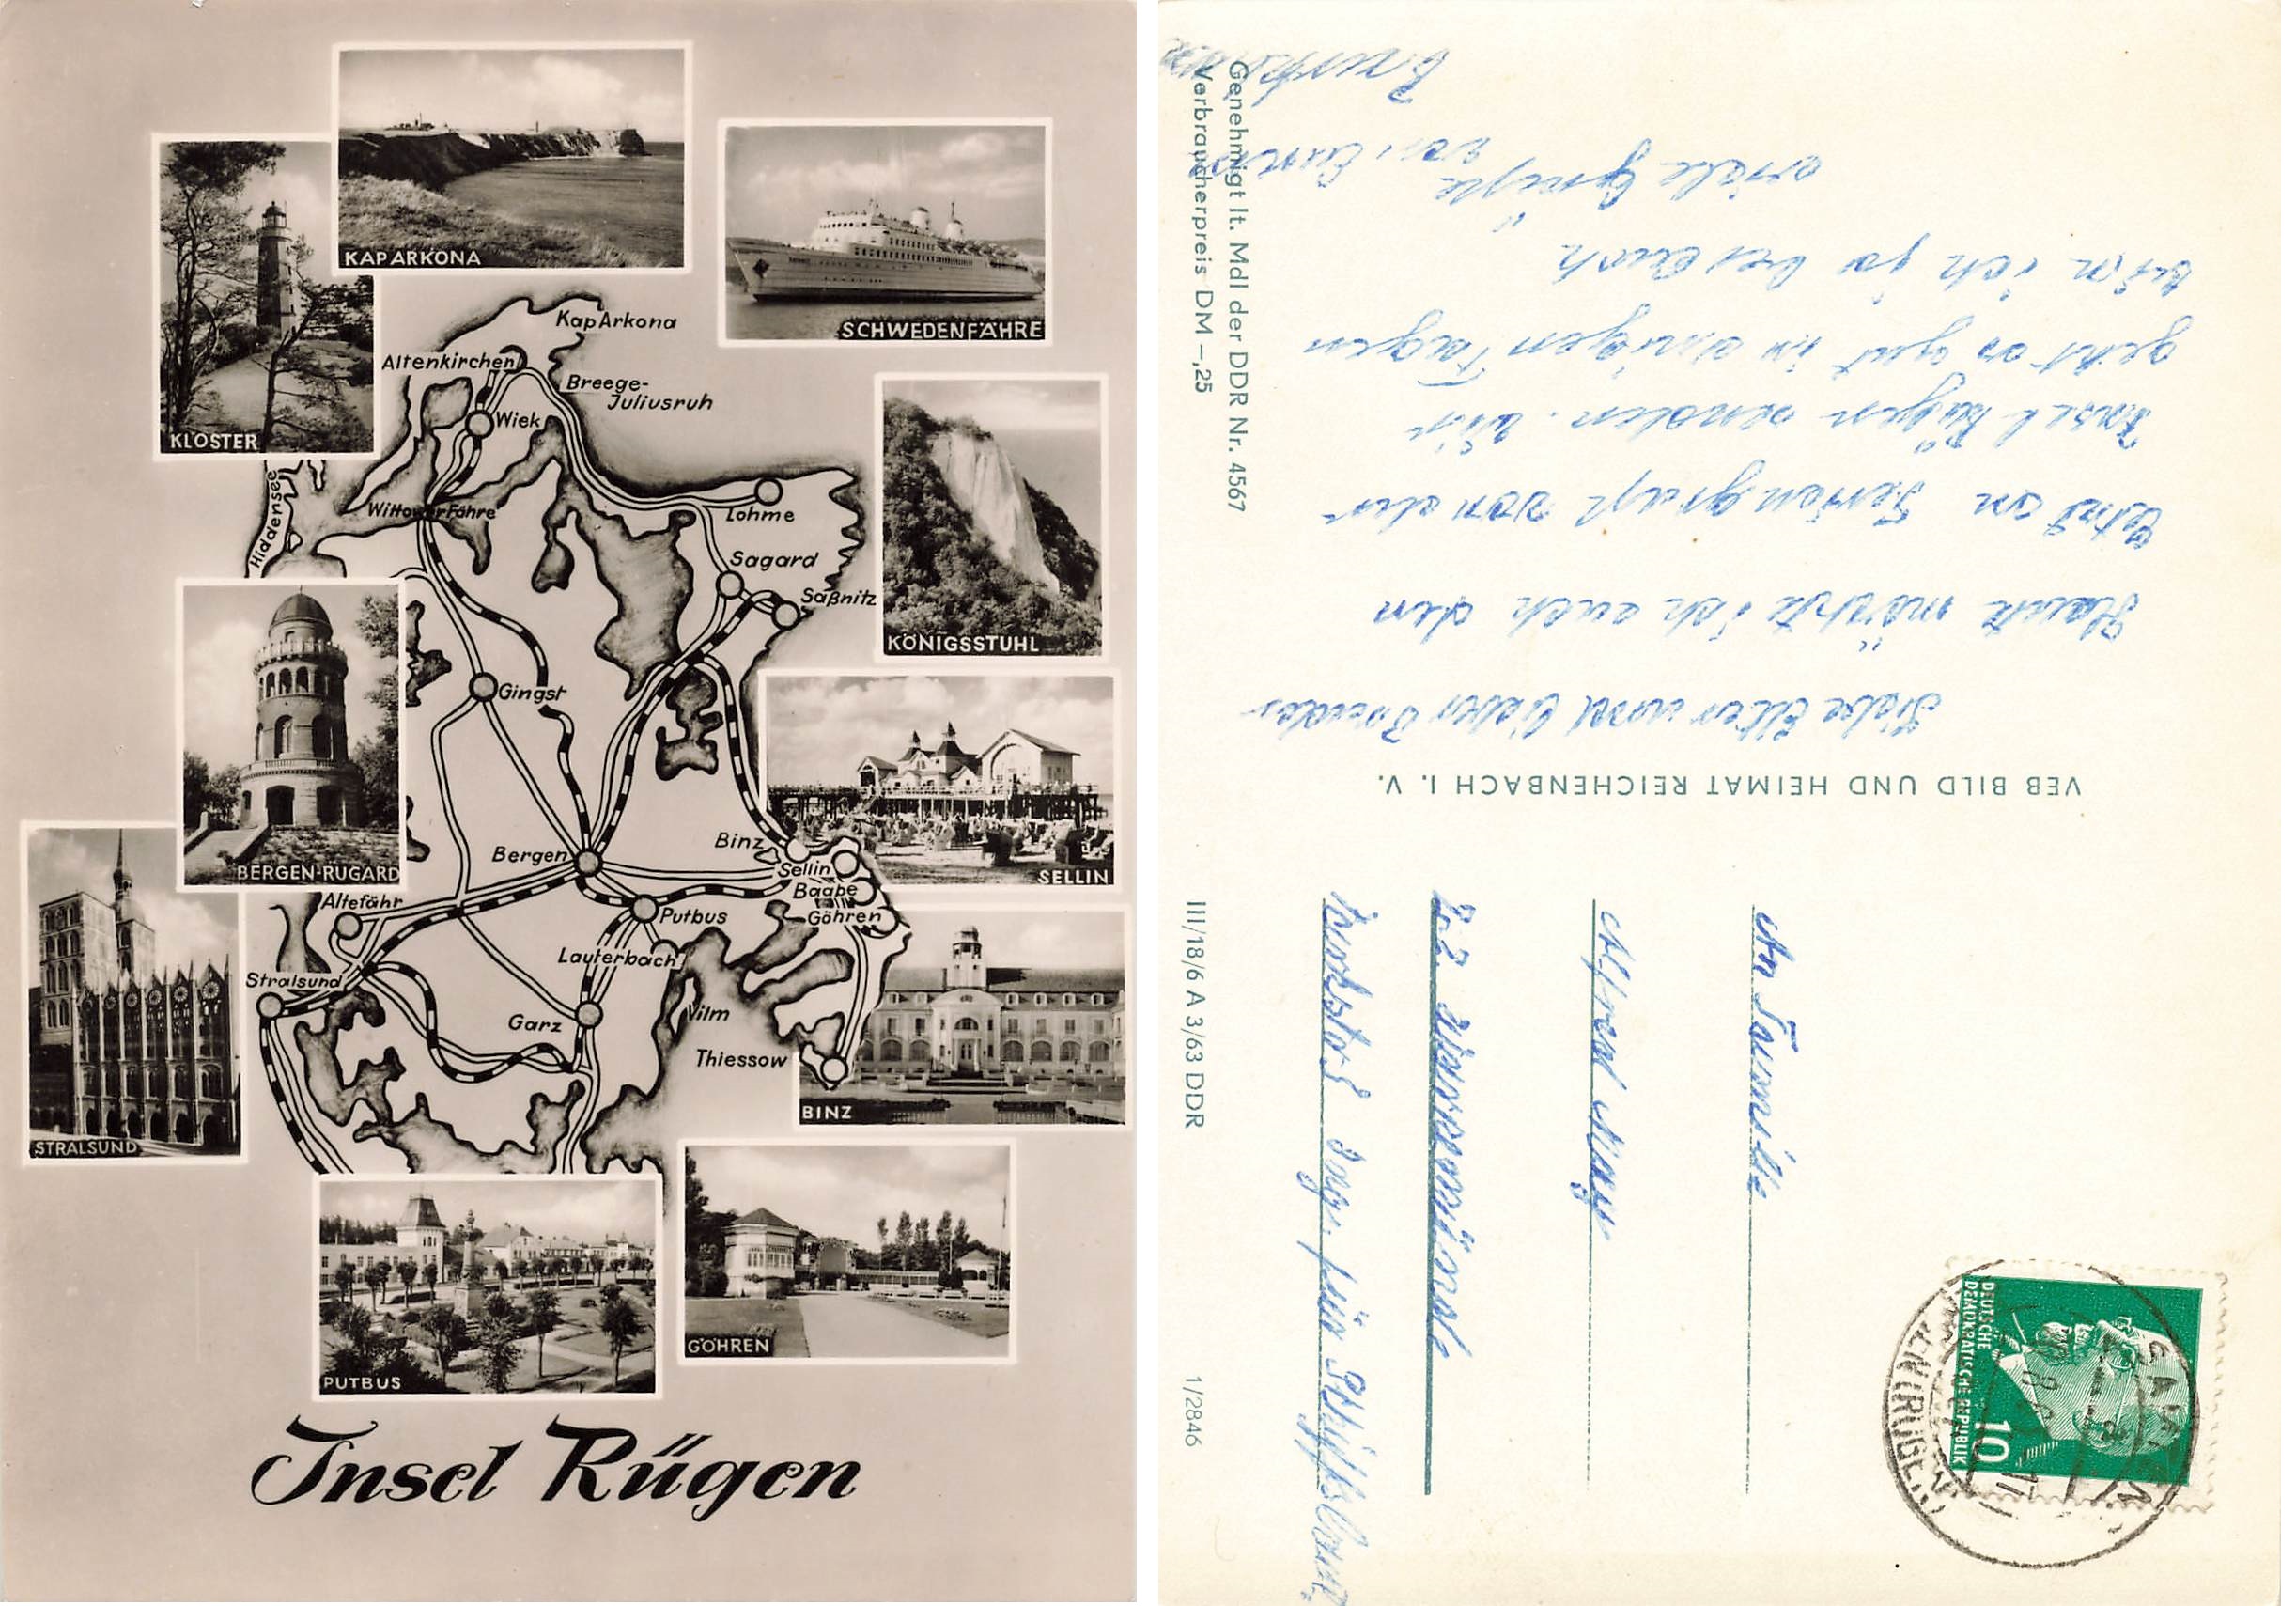 KAP ARKONA
SCHWEDENFÄHRE
KLOSTER
KÖNIGSSTUHL
BERGEN-RUGARD
SELLIN
STRALSUND
BINZ
PUTBUS
GÖHREN
Kap Arkona
Altenkirchen
Breege-
Juliusruh
Wiek
Hiddensee
Wittower Fähre
Lohme
Sagard
Saßnitz
Gingst
Bergen
Binz
Sellin
Baabe
Göhren
Altefähr
Putbus
Lauterbach
Stralsund
Garz
Vilm
Thiessow
Insel Rügen
Genehmigt lt. MdI der DDR Nr. 4567
Verbraucherpreis DM -,25
VEB BILD UND HEIMAT REICHENBACH I. V.
III/18/6 A 3/63 DDR
1/2846
Liebe Eltern und lieber Bruder
Heute möchte ich euch den
Feriengruß von der
Insel Rügen senden. Wir
geht es gut in einigen Tagen
bin ich ja bei Euch
viele Grüße
von Eurem
An Familie
Alfred
22 Warnemünde
Werkstraß Ing. für Schiffsbau
DEUTSCHE
DEMOKRATISCHE REPUBLIK
10
GARZ
(RÜGEN)